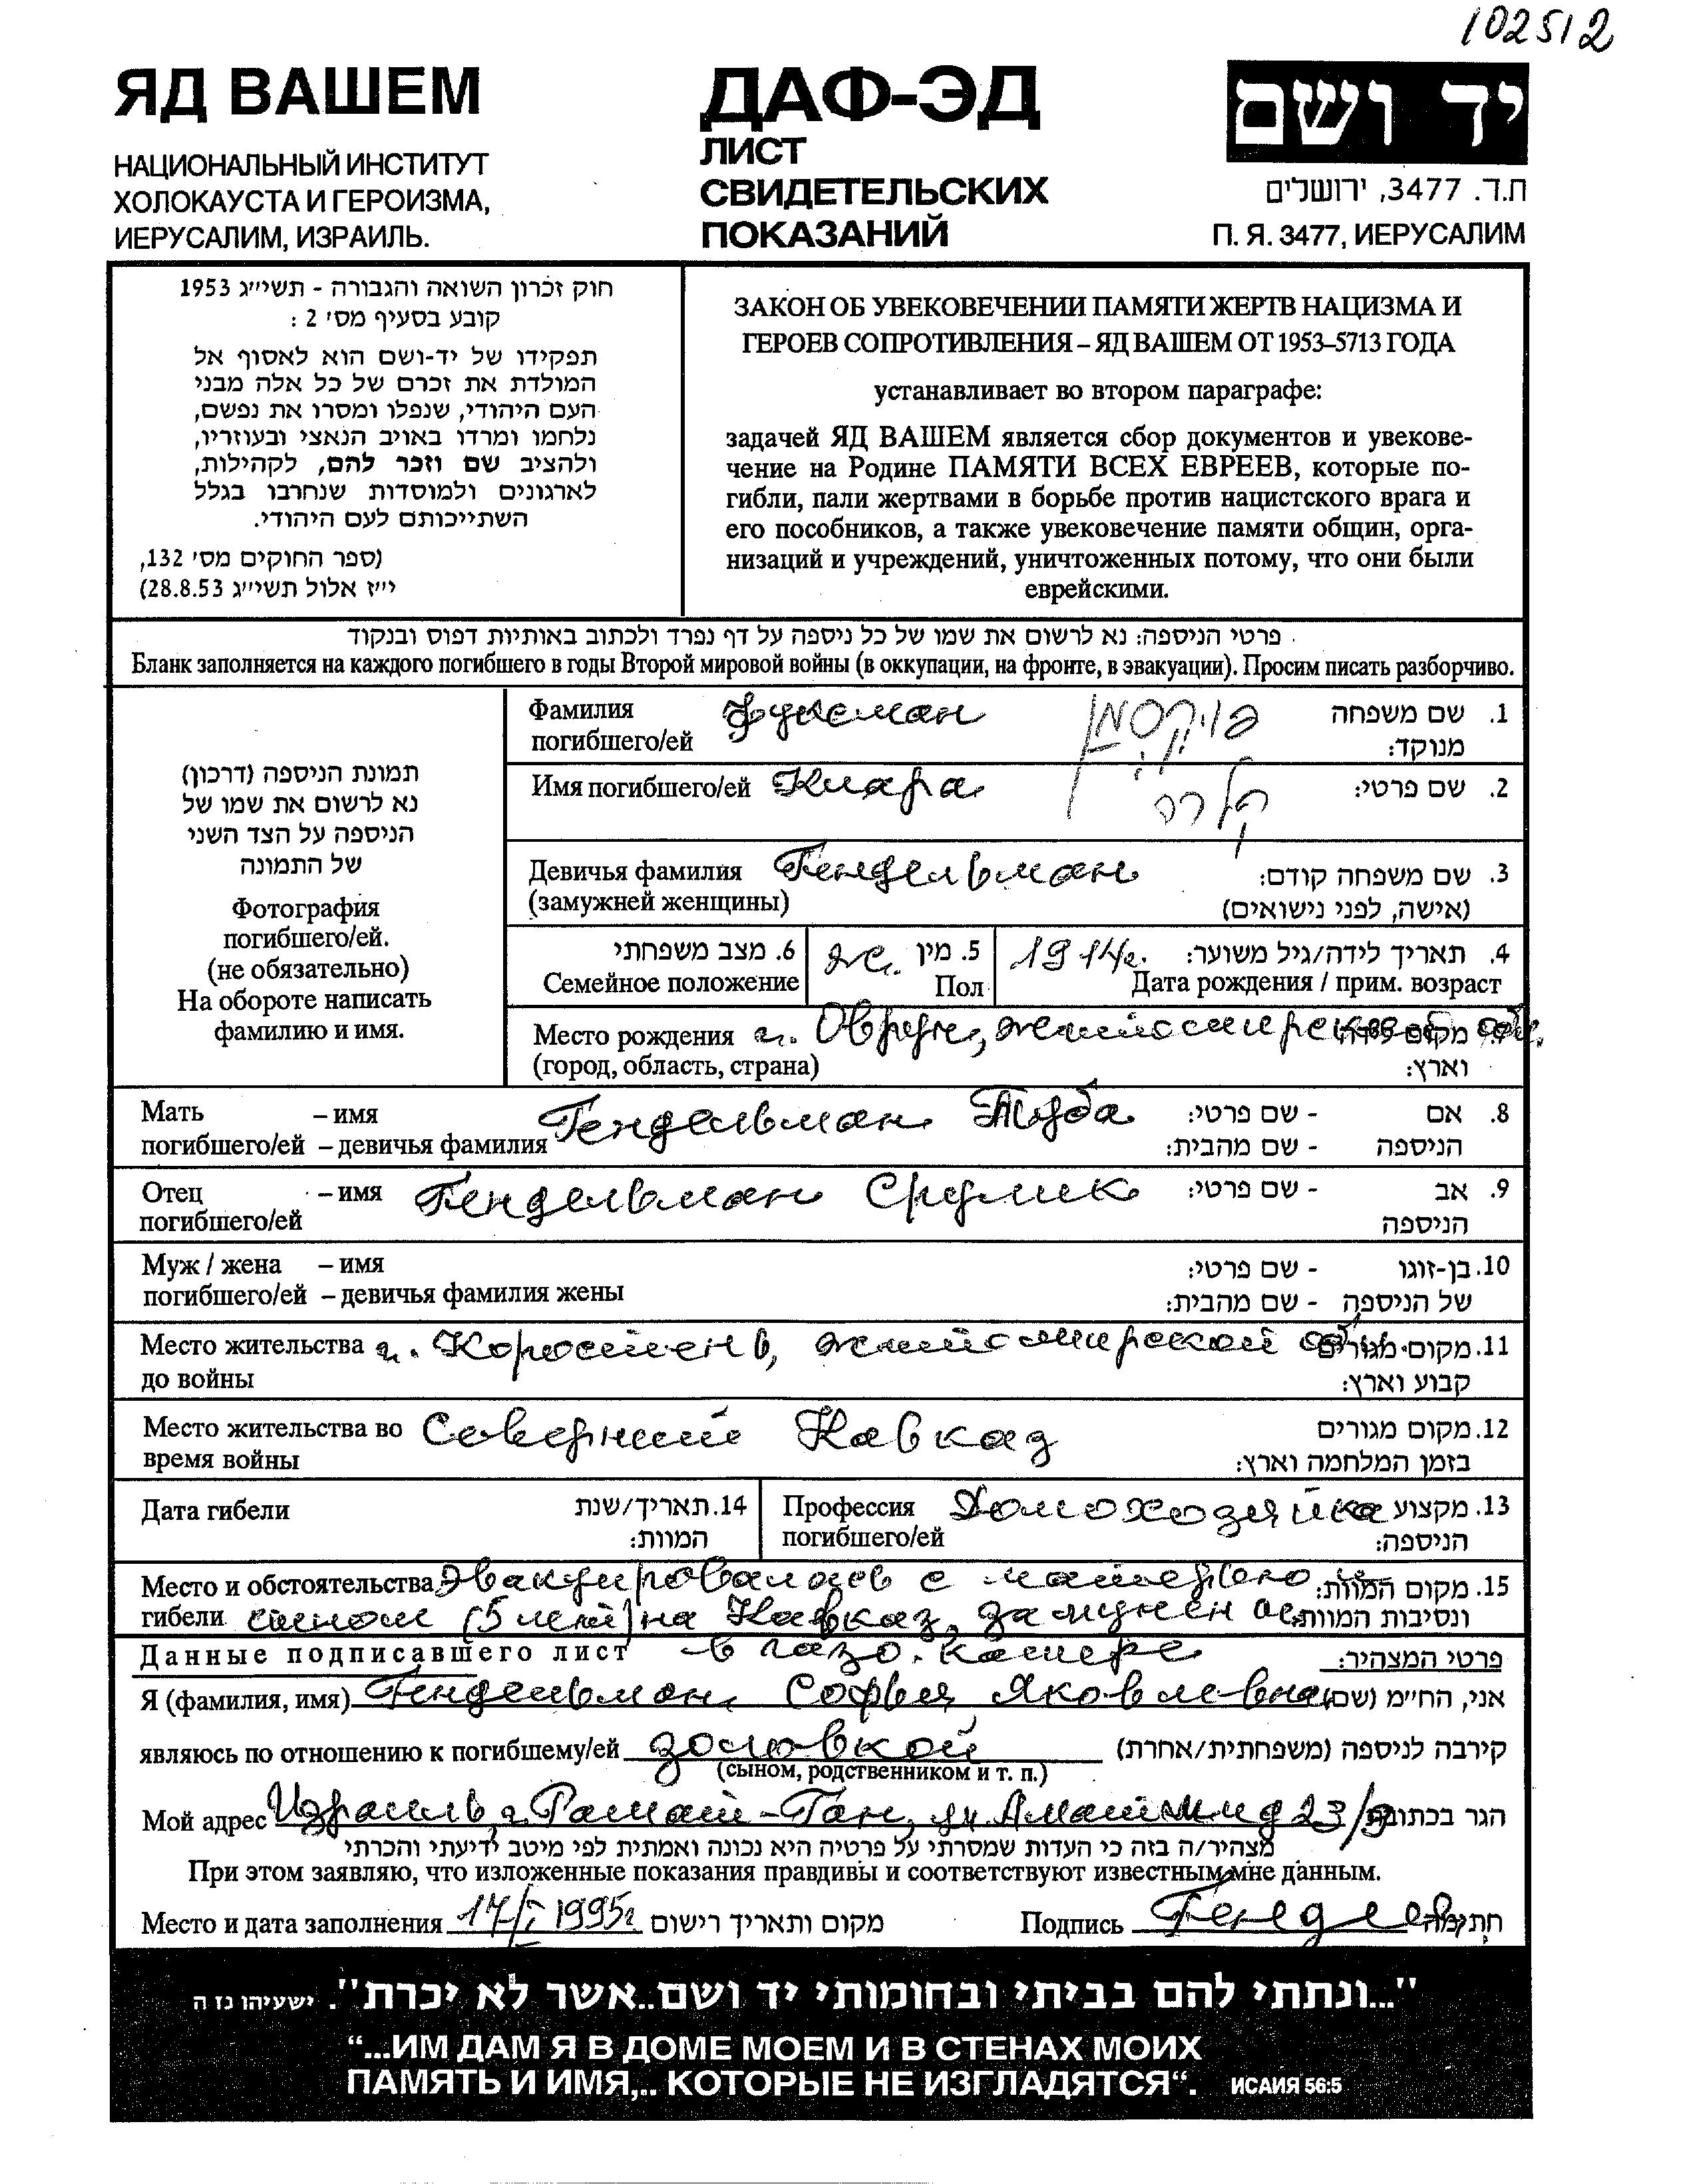 102512
ЯД ВАШЕМ
НАЦИОНАЛЬНЫЙ ИНСТИТУТ
ХОЛОКАУСТА И ГЕРОИЗМА,
ИЕРУСАЛИМ, ИЗРАИЛЬ.
ДАФ-ЭД
ЛИСТ
СВИДЕТЕЛЬСКИХ
ПОКАЗАНИЙ
יד ושם
ת.ד. 3477, ירושלים
П. Я. 3477, ИЕРУСАЛИМ
חוק זכרון השואה והגבורה - תשי״ג 1953
קובע בסעיף מס׳ 2 :
תפקידו של יד-ושם הוא לאסוף אל
המולדת את זכרם של כל אלה מבני
העם היהודי, שנפלו ומסרו את נפשם,
נלחמו ומרדו באויב הנאצי ובעוזריו,
ולהציב שם וזכר להם, לקהילות,
לארגונים ולמוסדות שנחרבו בגלל
השתייכותם לעם היהודי.
(ספר החוקים מס׳ 132,
י״ז אלול תשי״ג 28.8.53)
ЗАКОН ОБ УВЕКОВЕЧЕНИИ ПАМЯТИ ЖЕРТВ НАЦИЗМА И
ГЕРОЕВ СОПРОТИВЛЕНИЯ – ЯД ВАШЕМ ОТ 1953–5713 ГОДА
устанавливает во втором параграфе:
задачей ЯД ВАШЕМ является сбор документов и увекове-
чение на Родине ПАМЯТИ ВСЕХ ЕВРЕЕВ, которые по-
гибли, пали жертвами в борьбе против нацистского врага и
его пособников, а также увековечение памяти общин, орга-
низаций и учреждений, уничтоженных потому, что они были
еврейскими.
פרטי הניספה: נא לרשום את שמו של כל ניספה על דף נפרד ולכתוב באותיות דפוס ובנקוד
Бланк заполняется на каждого погибшего в годы Второй мировой войны (в оккупации, на фронте, в эвакуации). Просим писать разборчиво.
תמונת הניספה (דרכון)
נא לרשום את שמו של
הניספה על הצד השני
של התמונה
Фотография
погибшего/ей.
(не обязательно)
На обороте написать
фамилию и имя.
Фамилия Фуксман פוקסמן 1. שם משפחה
погибшего/ей מנוקד:
Имя погибшего/ей Клара קלרה 2. שם פרטי:
Девичья фамилия Гендельман 3. שם משפחה קודם:
(замужней женщины) (אישה, לפני נישואים)
6. מצב משפחתי 5. מין ж. 4. תאריך לידה/גיל משוער: 1914г.
Семейное положение Пол Дата рождения / прим. возраст
Место рождения г. Овруч, житомирской обл. 7. מקום לידה
(город, область, страна) וארץ:
Мать – имя Гендельман Туба 8. אם - שם פרטי:
погибшего/ей – девичья фамилия הניספה - שם מהבית:
Отец – имя Гендельман Срулик 9. אב - שם פרטי:
погибшего/ей הניספה
Муж / жена – имя 10. בן-זוגו - שם פרטי:
погибшего/ей – девичья фамилия жены של הניספה - שם מהבית:
Место жительства г. Коростень, житомирской обл. 11. מקום מגורים
до войны קבוע וארץ:
Место жительства во Северный Кавказ 12. מקום מגורים
время войны בזמן המלחמה וארץ:
Дата гибели 14. תאריך/שנת Профессия Домохозяйка 13. מקצוע
המוות: погибшего/ей הניספה:
Место и обстоятельства Эвакуировалась с матерью и 15. מקום המוות:
гибели сыном (5 лет) на Кавказ, замучен ונסיבות המוות
Данные подписавшего лист в газо. камере פרטי המצהיר:
Я (фамилия, имя) Гендельман София Яковлевна אני, הח״מ (שם)
являюсь по отношению к погибшему/ей золовкой קירבה לניספה (משפחתית/אחרת)
(сыном, родственником и т. п.)
Мой адрес Израиль, г. Рамат-Ган, ул. 23/9 הגר בכתובת
מצהיר/ה בזה כי העדות שמסרתי על פרטיה היא נכונה ואמתית לפי מיטב ידיעתי והכרתי
При этом заявляю, что изложенные показания правдивы и соответствуют известным мне данным.
Место и дата заполнения 17/I 1995г מקום ותאריך רישום Подпись חתימה
"...ונתתי להם בביתי ובחומותי יד ושם..אשר לא יכרת". ישעיהו נו ה
“...ИМ ДАМ Я В ДОМЕ МОЕМ И В СТЕНАХ МОИХ
ПАМЯТЬ И ИМЯ,.. КОТОРЫЕ НЕ ИЗГЛАДЯТСЯ“. ИСАИЯ 56:5